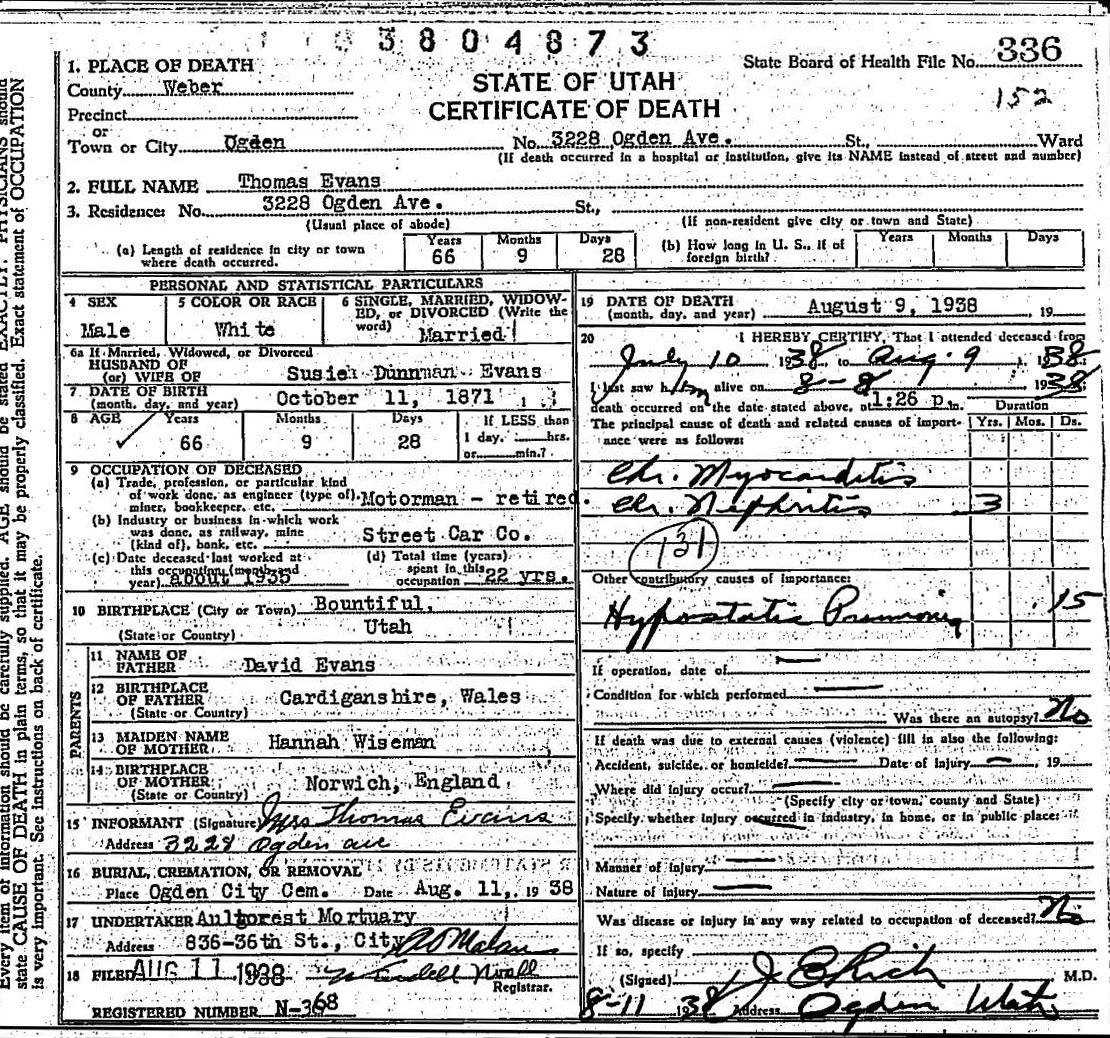 3804873
State Board of Health File No. 336
152
1. PLACE OF DEATH
County Weber
STATE OF UTAH
CERTIFICATE OF DEATH
Precinct
or
Town or City Ogden No. 3228 Ogden Ave. St., Ward
(If death occurred in a hospital or institution, give its NAME instead of street and number)
2. FULL NAME Thomas Evans
3. Residence: No. 3228 Ogden Ave. St.,
(Usual place of abode) (If non-resident give city or town and State)
(a) Length of residence in city or town where death occurred. Years 66 Months 9 Days 28
(b) How long in U. S., if of foreign birth? Years Months Days
PERSONAL AND STATISTICAL PARTICULARS
4 SEX Male
5 COLOR OR RACE White
6 SINGLE, MARRIED, WIDOWED, or DIVORCED (Write the word) Married
6a If Married, Widowed, or Divorced
HUSBAND OF
(or) WIFE OF Susieh Dunnman Evans
7 DATE OF BIRTH
(month, day, and year) October 11, 1871
8 AGE Years 66 Months 9 Days 28 If LESS than 1 day, hrs. or min.?
9 OCCUPATION OF DECEASED
(a) Trade, profession, or particular kind
of work done, as engineer (type of),
miner, bookkeeper, etc. Motorman - retired.
(b) Industry or business in which work
was done, as railway, mine
(kind of), bank, etc. Street Car Co.
(c) Date deceased last worked at
this occupation (month and
year) about 1935
(d) Total time (years)
spent in this
occupation 22 yrs.
10 BIRTHPLACE (City or Town) Bountiful,
(State or Country) Utah
PARENTS
11 NAME OF
FATHER David Evans
12 BIRTHPLACE
OF FATHER Cardiganshire, Wales
(State or Country)
13 MAIDEN NAME
OF MOTHER Hannah Wiseman
14 BIRTHPLACE
OF MOTHER Norwich, England
(State or Country)
15 INFORMANT (Signature) Mrs Thomas Evans
Address 3228 Ogden ave
16 BURIAL, CREMATION, OR REMOVAL
Place Ogden City Cem. Date Aug. 11, 1938
17 UNDERTAKER Aultorest Mortuary
Address 836-36th St., City
18 FILED AUG 11 1938
Registrar.
REGISTERED NUMBER N-368
19 DATE OF DEATH
(month, day, and year) August 9, 1938 , 19
20 I HEREBY CERTIFY, That I attended deceased from
July 10 1938, to Aug. 9, 1938
I last saw him alive on 8-8 1938
death occurred on the date stated above, at 1:26 p.m. Duration
The principal cause of death and related causes of importance were as follows: Yrs. Mos. Ds.
Chr. Myocarditis
Chr. Nephritis 3
131
Other contributory causes of importance:
Hypostatic Pneumonia 15
If operation, date of
Condition for which performed
Was there an autopsy? No
If death was due to external causes (violence) fill in also the following:
Accident, suicide, or homicide? Date of injury , 19
Where did injury occur?
(Specify city or town, county and State)
Specify whether injury occurred in industry, in home, or in public place:
Manner of Injury
Nature of Injury
Was disease or injury in any way related to occupation of deceased? No
If so, specify
(Signed) J E Rich M.D.
8-11 1938 Address Ogden Utah
AGE should be stated EXACTLY. PHYSICIANS should
Every item of information should be carefully supplied.
state CAUSE OF DEATH in plain terms, so that it may be properly classified. Exact statement of OCCUPATION
is very important. See instructions on back of certificate.